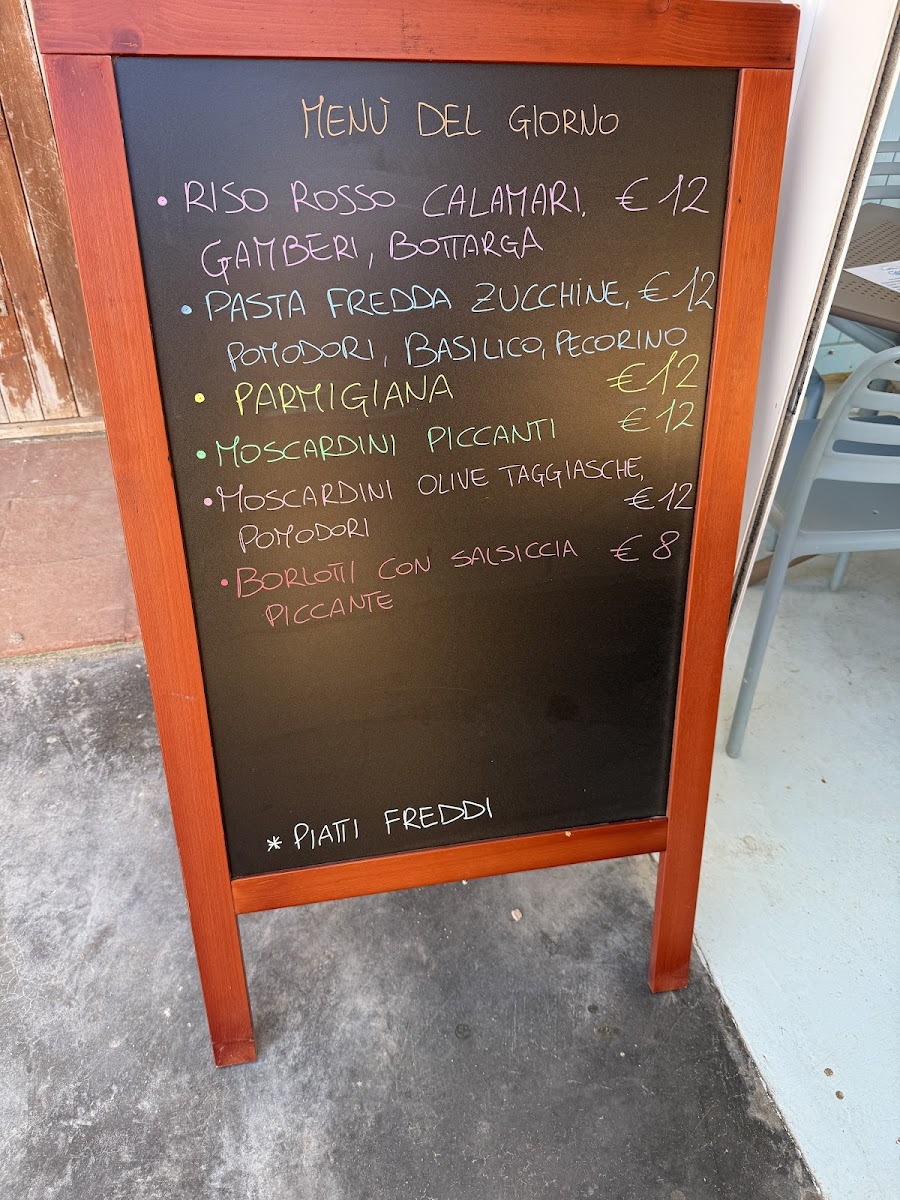 MENÙ DEL GIORNO
• RISO ROSSO CALAMARI, € 12
GAMBERI, BOTTARGA
• PASTA FREDDA ZUCCHINE, € 12
POMODORI, BASILICO, PECORINO
• PARMIGIANA €12
• MOSCARDINI PICCANTI €12
• MOSCARDINI OLIVE TAGGIASCHE,
POMODORI €12
• BORLOTTI CON SALSICCIA € 8
PICCANTE
* PIATTI FREDDI